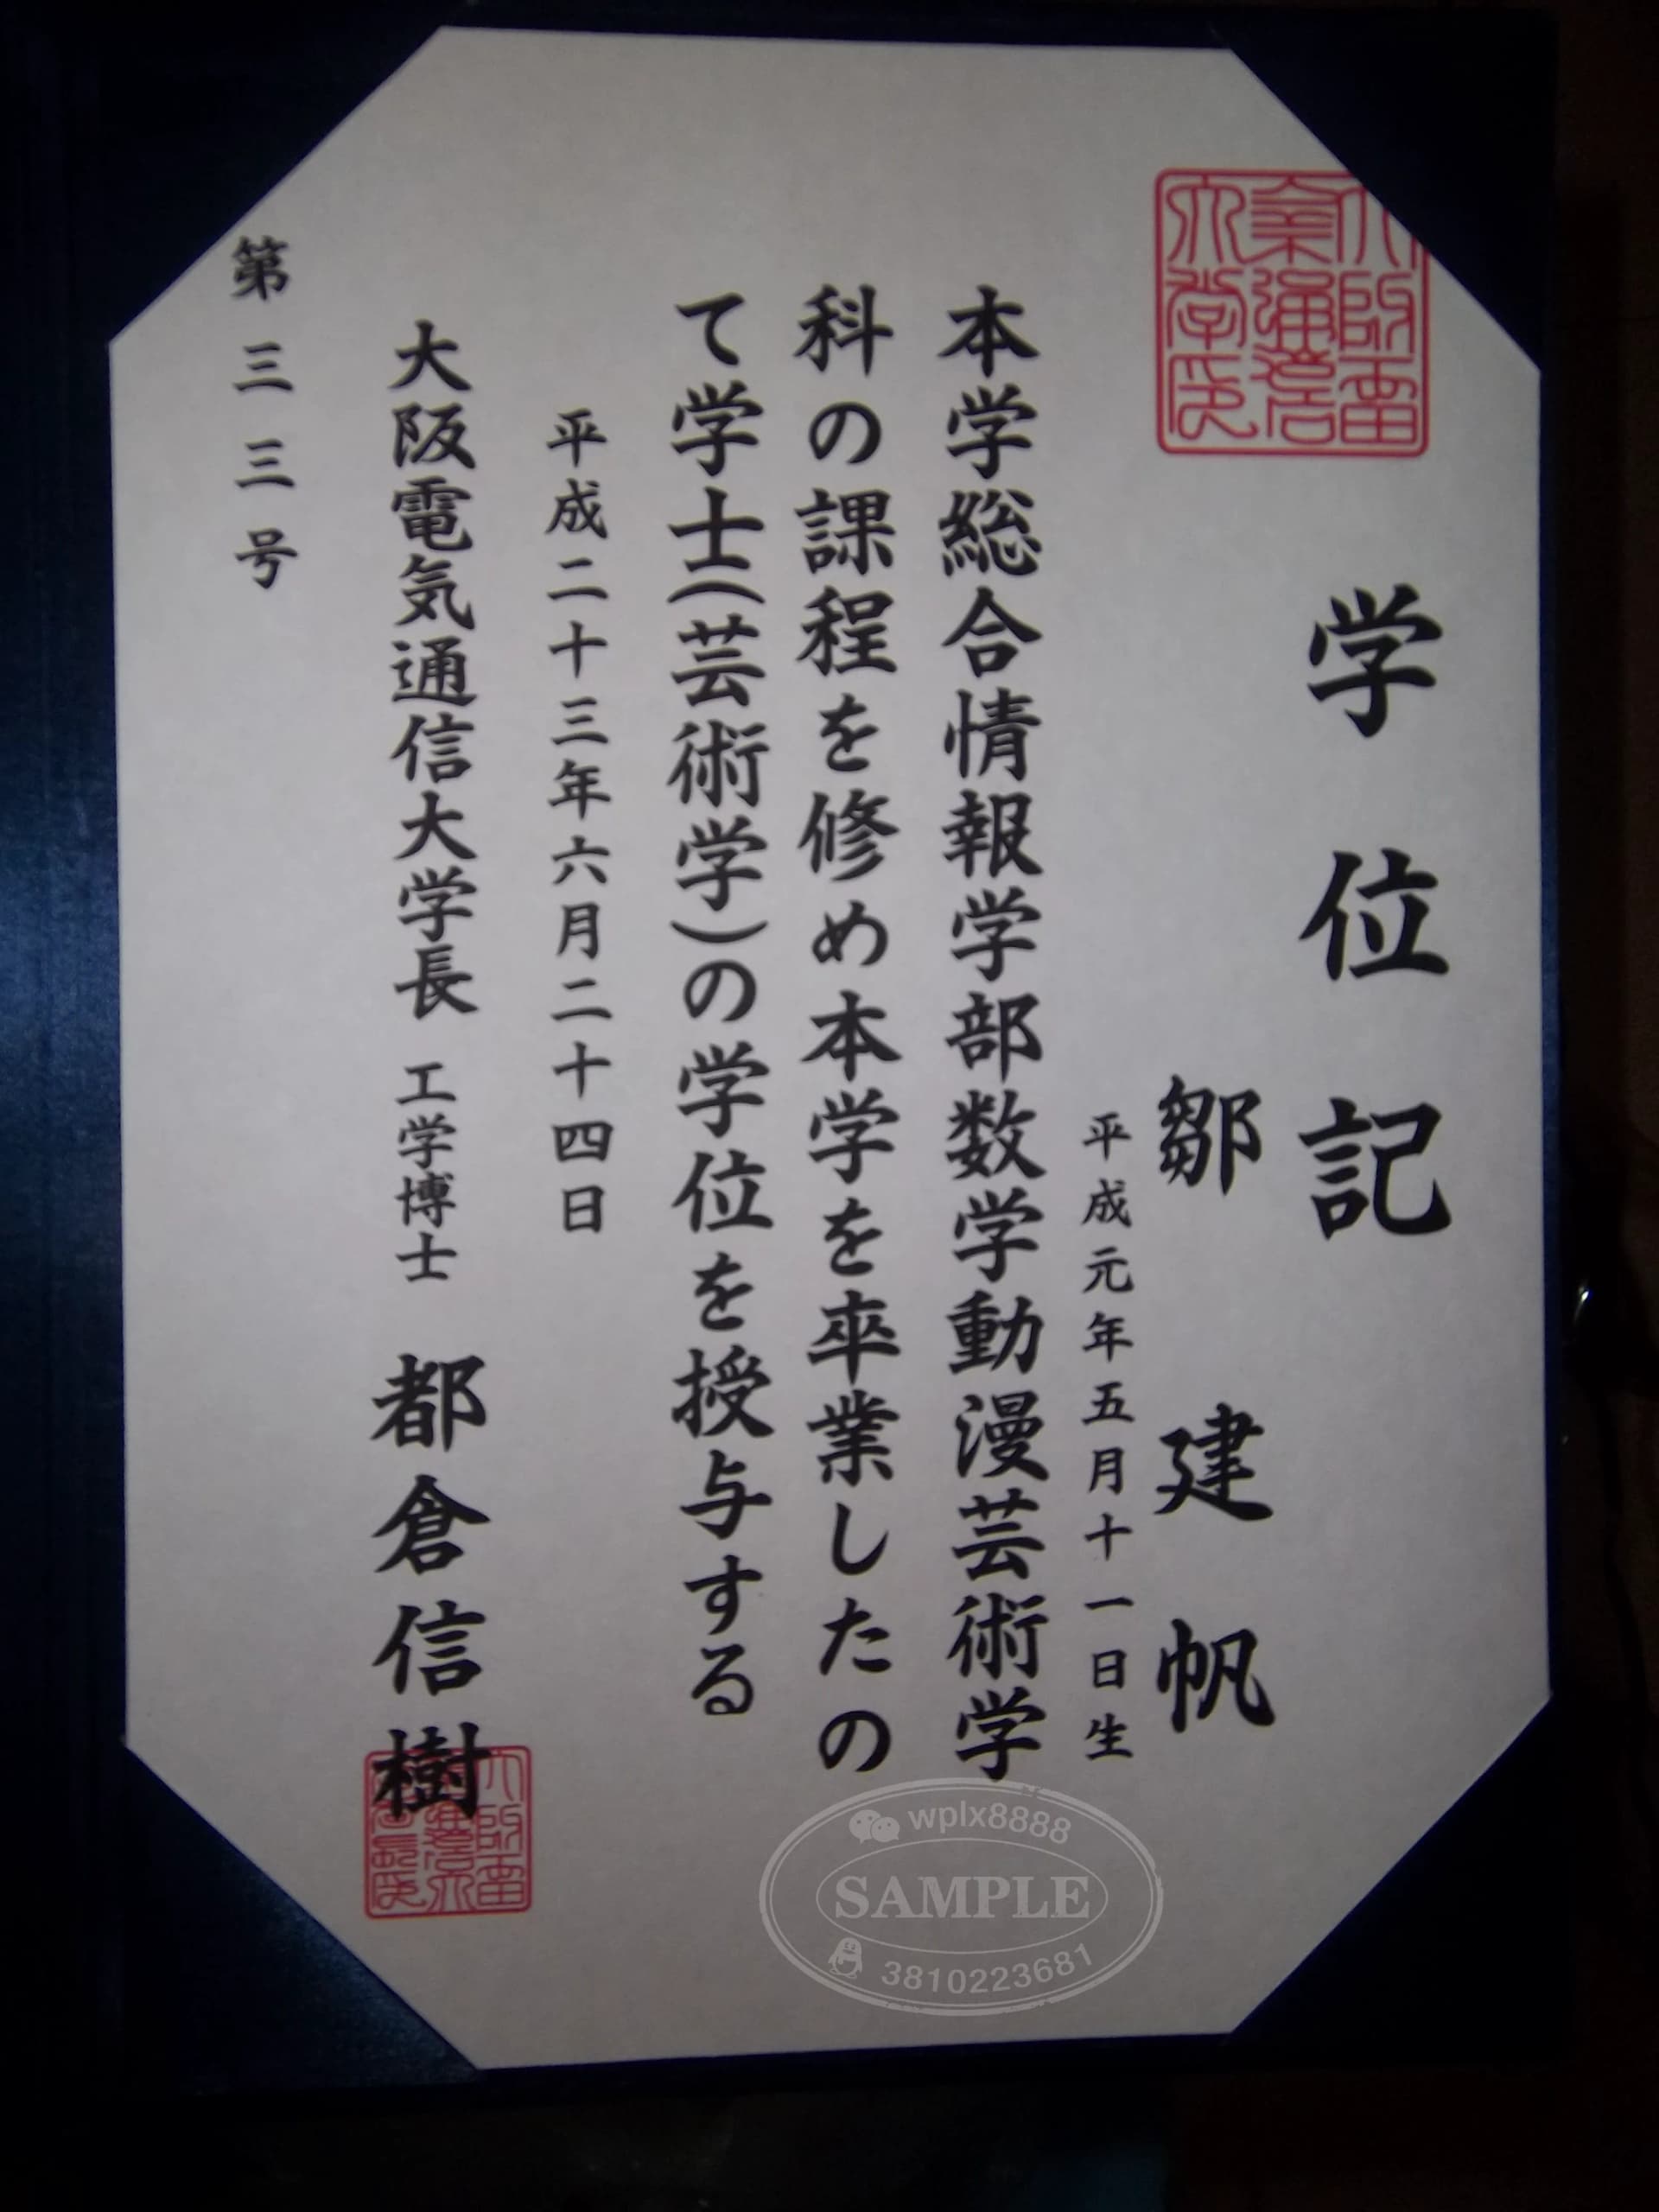 学位記
鄒建帆
平成元年五月十一日生
本学総合情報学部数学動漫芸術学
科の課程を修め本学を卒業したの
て学士(芸術学)の学位を授与する
平成二十三年六月二十四日
大阪電気通信大学長 工学博士 都倉信樹
第三三号
wplx8888
SAMPLE
3810223681